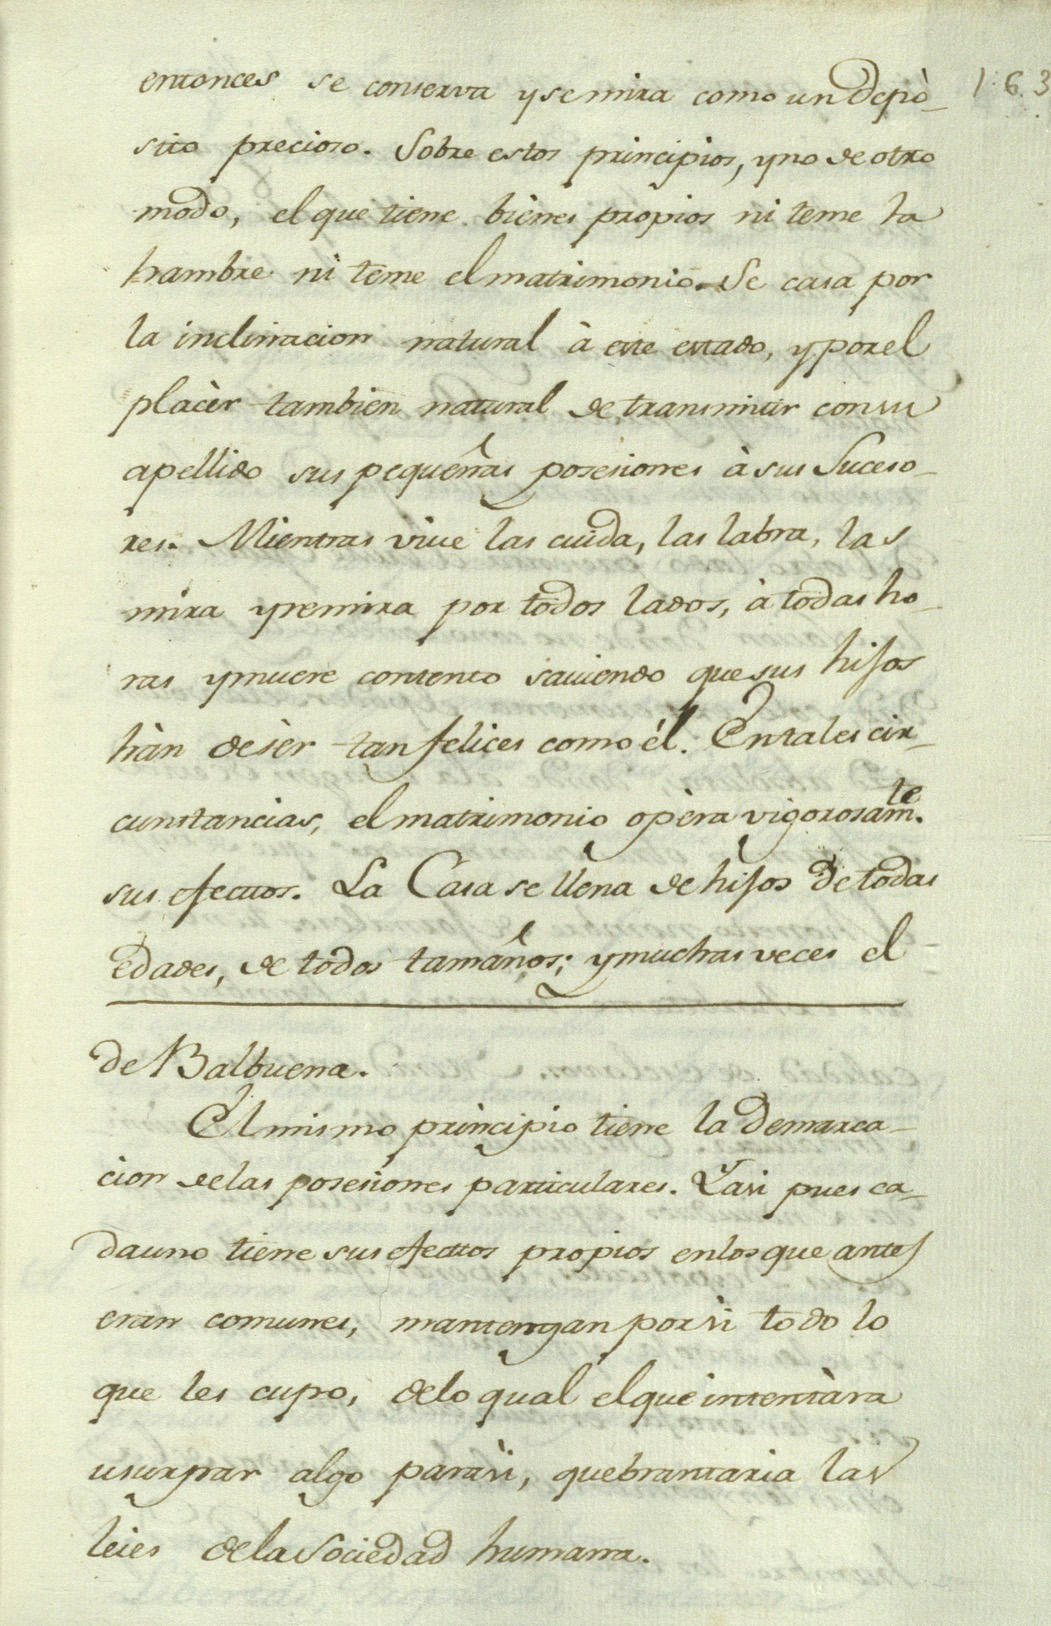 163
entonces se conserva y se mira como un depò-
sito precioso. Sobre estos principios, y no de otro
modo, el que tiene bienes propios ni teme la
hambre ni teme el matrimonio. Se casa por
la inclinacion natural à este estado, y por el
placèr tambien natural de transmitir con su
apellido sus pequeñas posesiones à sus Suceso-
res. Mientras vive las cuida, las labra, las
mira y remira por todos lados, à todas ho-
ras y muere contento saviendo que sus hijos
hàn de sèr tan felices como èl. En tales cir-
cunstancias, el matrimonio opèra vigorosamte.
sus efectos. La Casa se llena de hijos de todas
edades, de todos tamaños; y muchas veces el
de Balbuena.
El mismo principio tiene la demarca-
cion de las posesiones particulares. Y asi pues ca-
da uno tiene sus efectos propios en los que antes
eran comunes, mantengan por si todo lo
que les cupo, de lo qual el que intentàra
usurpar algo para sì, quebrantaria las
leies de la Sociedad humana.